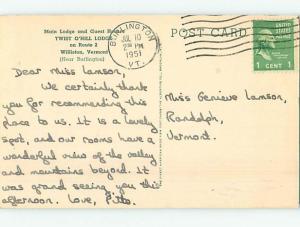 Main Lodge and Guest House
TWIST O'HILL LODGE
on Route 2
Williston, Vermont
(Near Burlington)
POST CARD
BURLINGTON
JUL 10
2 PM
1951
VT.
1 CENT 1
Dear Miss Lamson,
We certainly thank
you for recommending this
place to us. It is a lovely
spot, and our rooms have a
wonderful view of the valley
and mountains beyond. It
was grand seeing you this
afternoon. Love,
Miss Genieve Lamson,
Randolph,
Vermont.